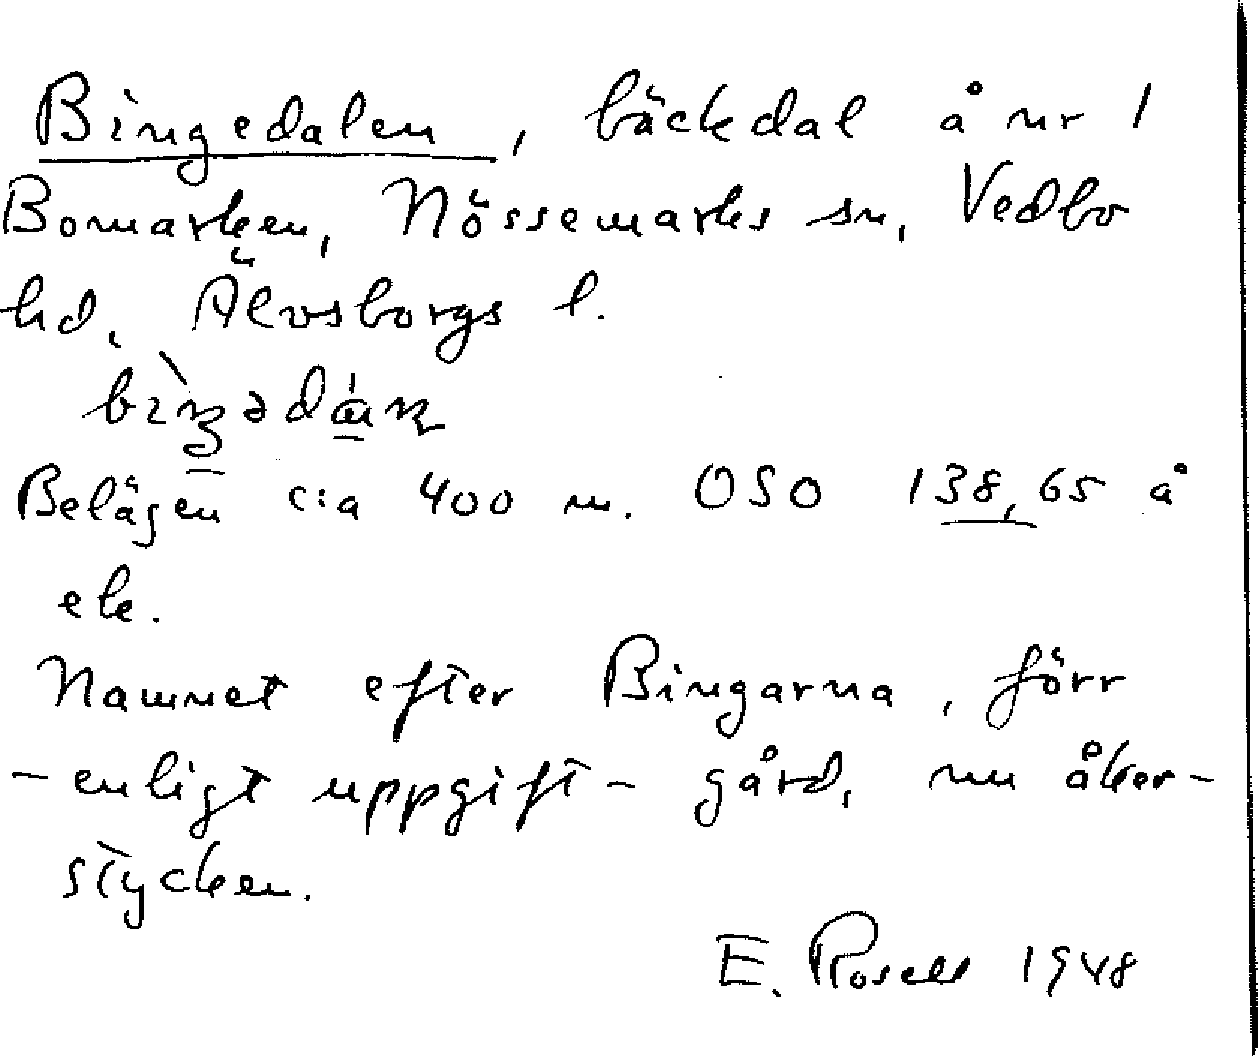 Bingedalen, bäckdal å nr 1
Bomarken, Nössemarks sn, Vedbo
hd, Älvsborgs l.
Belägen c:a 400 m. OSO 138,65 å
ek.
Namnet efter Bingarna, förr
- enligt uppgift - gård, nu åker-
stycken.
E. Rosell 1948